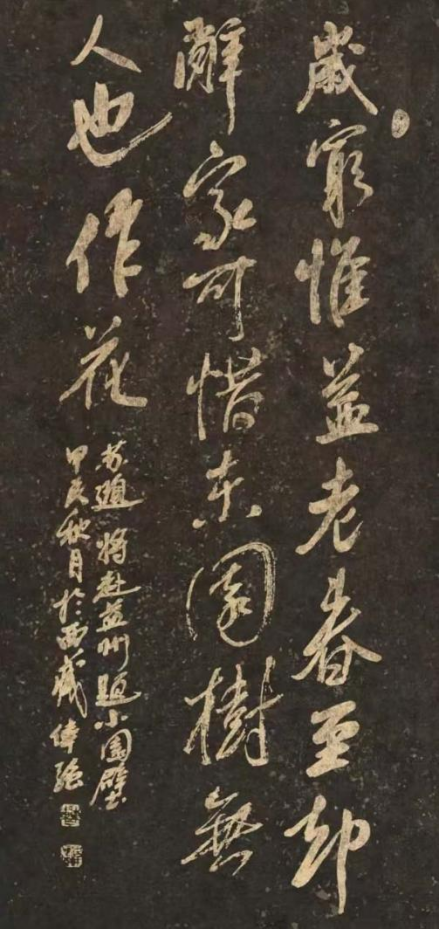 歲窮惟益老春至却
辭家可惜东園樹無
人也作花
苏頲将赴益州題小園壁
甲辰秋月於西藏偉